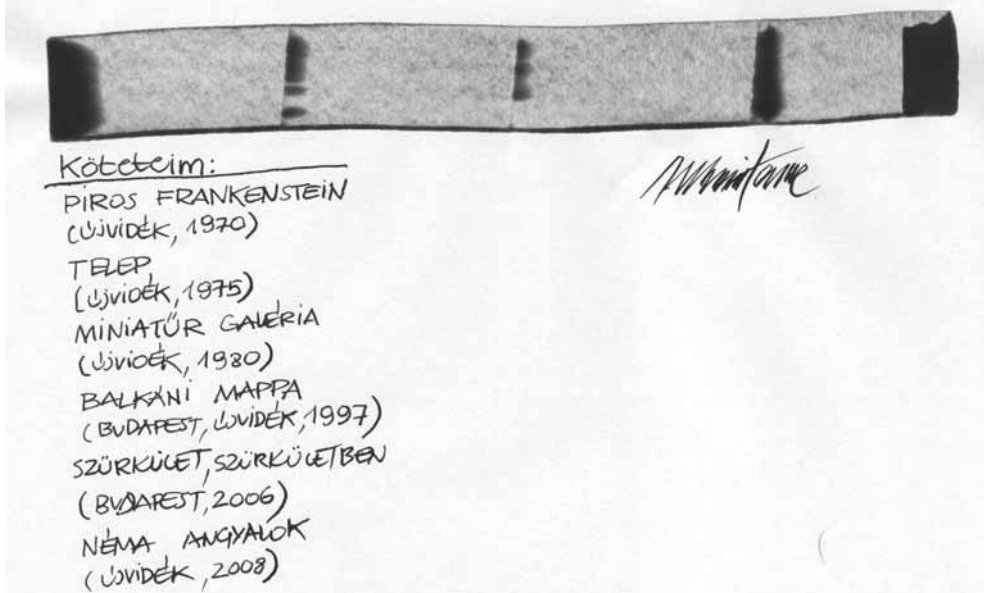 Köteteim:
PIROS FRANKENSTEIN
(ÚJVIDÉK, 1970)
TELEP
(ÚJVIDÉK, 1975)
MINIATŰR GALÉRIA
(ÚJVIDÉK, 1980)
BALKÁNI MAPPA
(BUDAPEST, ÚJVIDÉK, 1997)
SZÜRKÜLET, SZÜRKÜLETBEN
(BUDAPEST, 2006)
NÉMA ANGYALOK
(ÚJVIDÉK, 2008)